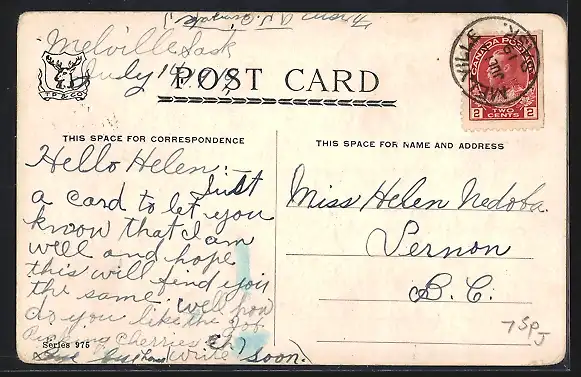 Melville Sask
July 14/08
POST CARD
T.P.& CO.
CANADA POSTAGE
2 TWO CENTS 2
MELVILLE
SASK
THIS SPACE FOR CORRESPONDENCE
Hello Helen:
Just
a card to let you
know that I am
well and hope
this will find you
the same. Well how
do you like the job
Picking Cherries eh?
Series 975
write soon.
THIS SPACE FOR NAME AND ADDRESS
Miss Helen Nedoba.
Vernon
B.C.